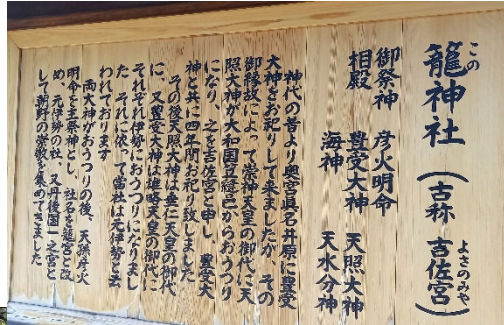 この
籠神社（古称 吉佐宮）
よさのみや
御祭神 彦火明命
相殿 豊受大神 天照大神
海神 天水分神
神代の昔より奥宮眞名井原に豊受
大神をお祀りして来ましたが、その
御縁故によって崇神天皇の御代に天
照大神が大和国笠縫邑からおうつり
になり、之を吉佐宮と申し、豊受大
神と共に四年間お祀り致しました
その後天照大神は垂仁天皇の御代
に、又豊受大神は雄略天皇の御代に
それぞれ伊勢におうつりになりまし
た それに依って当社は元伊勢と云
われております
両大神がおうつりの後、天孫彦火
明命を主祭神とし、社名を籠宮と改
め、元伊勢の社、又丹後国一之宮と
して朝野の崇敬を集めてきました